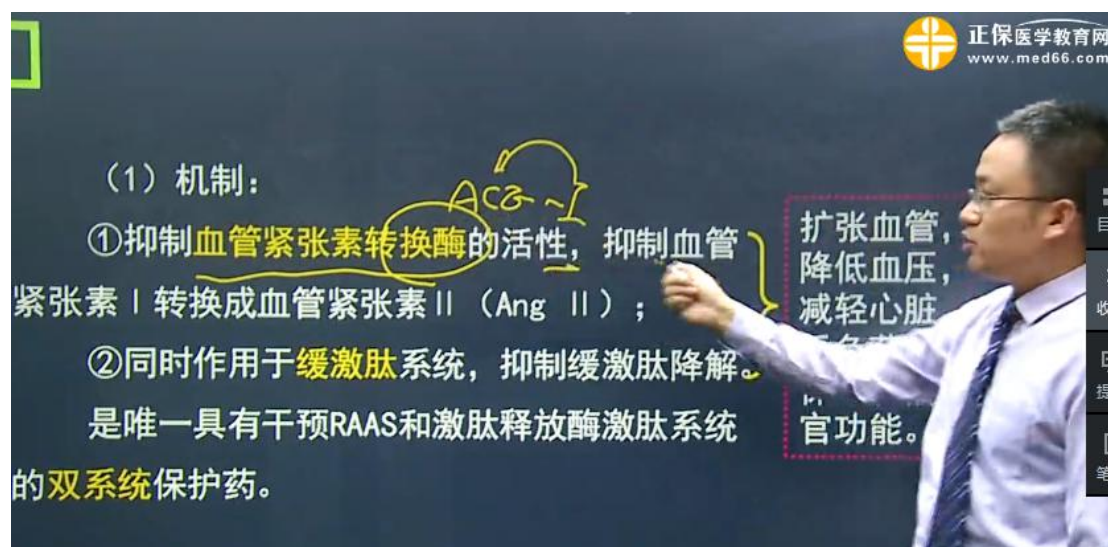 正保医学教育网
www.med66.com
（1）机制：
ACE ~ I
①抑制血管紧张素转换酶的活性，抑制血管
紧张素Ⅰ转换成血管紧张素Ⅱ（Ang Ⅱ）；
②同时作用于缓激肽系统，抑制缓激肽降解。
是唯一具有干预RAAS和激肽释放酶激肽系统
的双系统保护药。
扩张血管，
降低血压，
减轻心脏
官功能。
目
收
提
笔